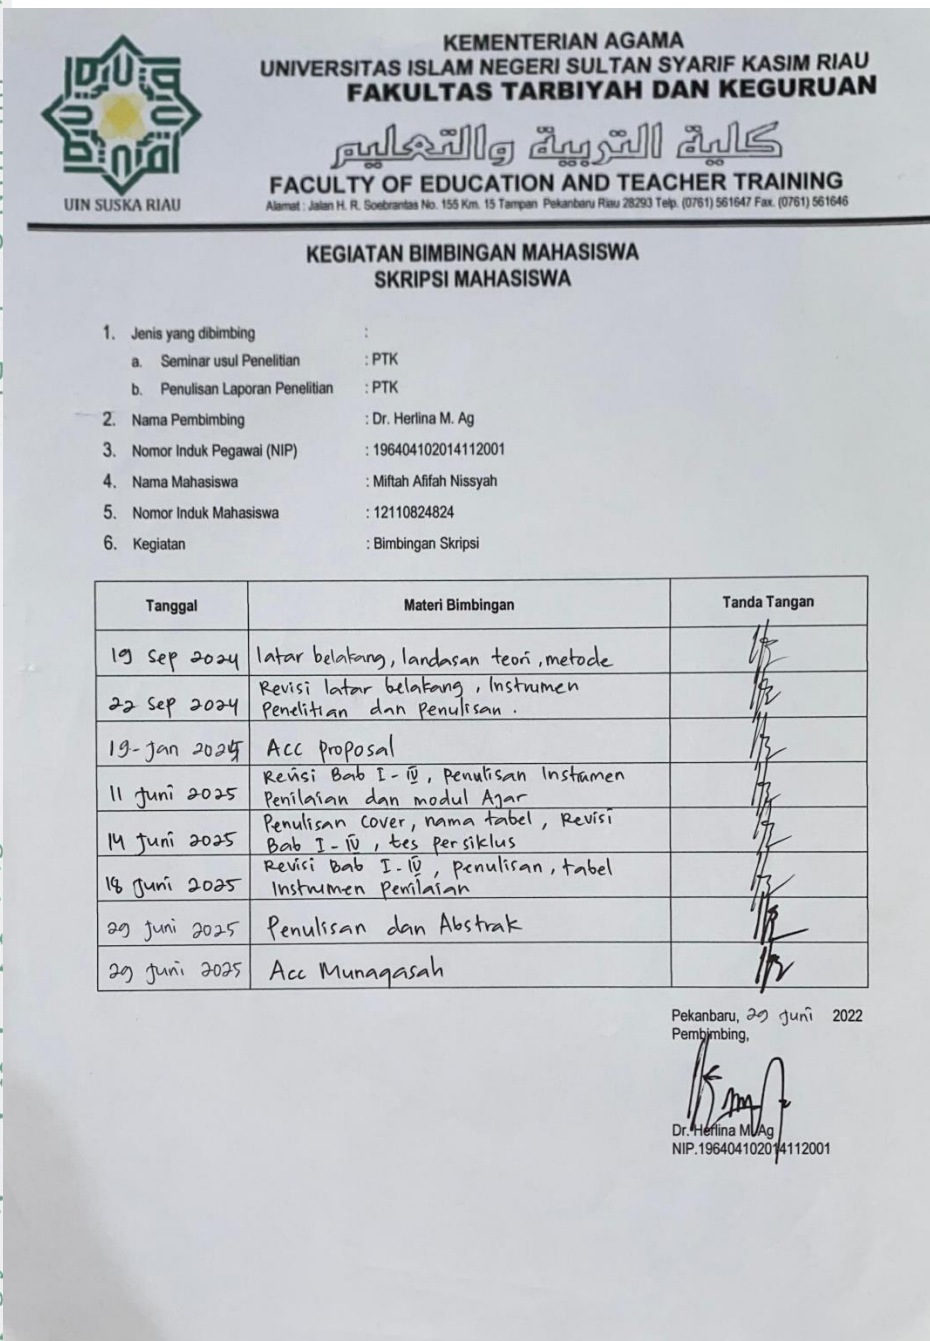 KEMENTERIAN AGAMA
UNIVERSITAS ISLAM NEGERI SULTAN SYARIF KASIM RIAU
FAKULTAS TARBIYAH DAN KEGURUAN
كلية التربية والتعليم
FACULTY OF EDUCATION AND TEACHER TRAINING
Alamat : Jalan H. R. Soebrantas No. 155 Km. 15 Tampan Pekanbaru Riau 28293 Telp. (0761) 561647 Fax. (0761) 561646
UIN SUSKA RIAU
KEGIATAN BIMBINGAN MAHASISWA
SKRIPSI MAHASISWA
1. Jenis yang dibimbing :
a. Seminar usul Penelitian : PTK
b. Penulisan Laporan Penelitian : PTK
2. Nama Pembimbing : Dr. Herlina M. Ag
3. Nomor Induk Pegawai (NIP) : 196404102014112001
4. Nama Mahasiswa : Miftah Afifah Nissyah
5. Nomor Induk Mahasiswa : 12110824824
6. Kegiatan : Bimbingan Skripsi
Tanggal Materi Bimbingan Tanda Tangan
19 Sep 2024 latar belakang, landasan teori, metode
22 Sep 2024 Revisi latar belakang, Instrumen
Penelitian dan penulisan.
19-Jan 2025 Acc proposal
11 Juni 2025 Revisi Bab I-IV, penulisan Instrumen
Penilaian dan modul Ajar
14 Juni 2025 Penulisan cover, nama tabel, Revisi
Bab I-IV, tes persiklus
18 Juni 2025 Revisi Bab I-IV, penulisan, tabel
Instrumen Penilaian
29 Juni 2025 Penulisan dan Abstrak
29 Juni 2025 Acc Munaqasah
Pekanbaru, 29 Juni 2022
Pembimbing,
Dr. Herlina M. Ag
NIP.196404102014112001